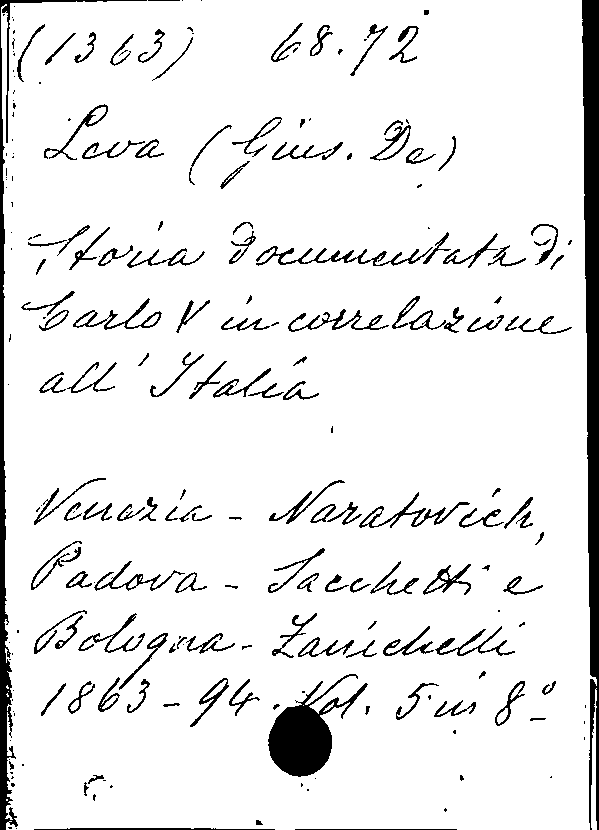 (1363) 68.72
Leva (Gius. De)
Storia documentata di
Carlo V in correlazione
all' Italia
Venezia - Naratovich,
Padova - Sacchetti e
Bologna - Zanichelli
1863-94. Vol. 5 in 8º